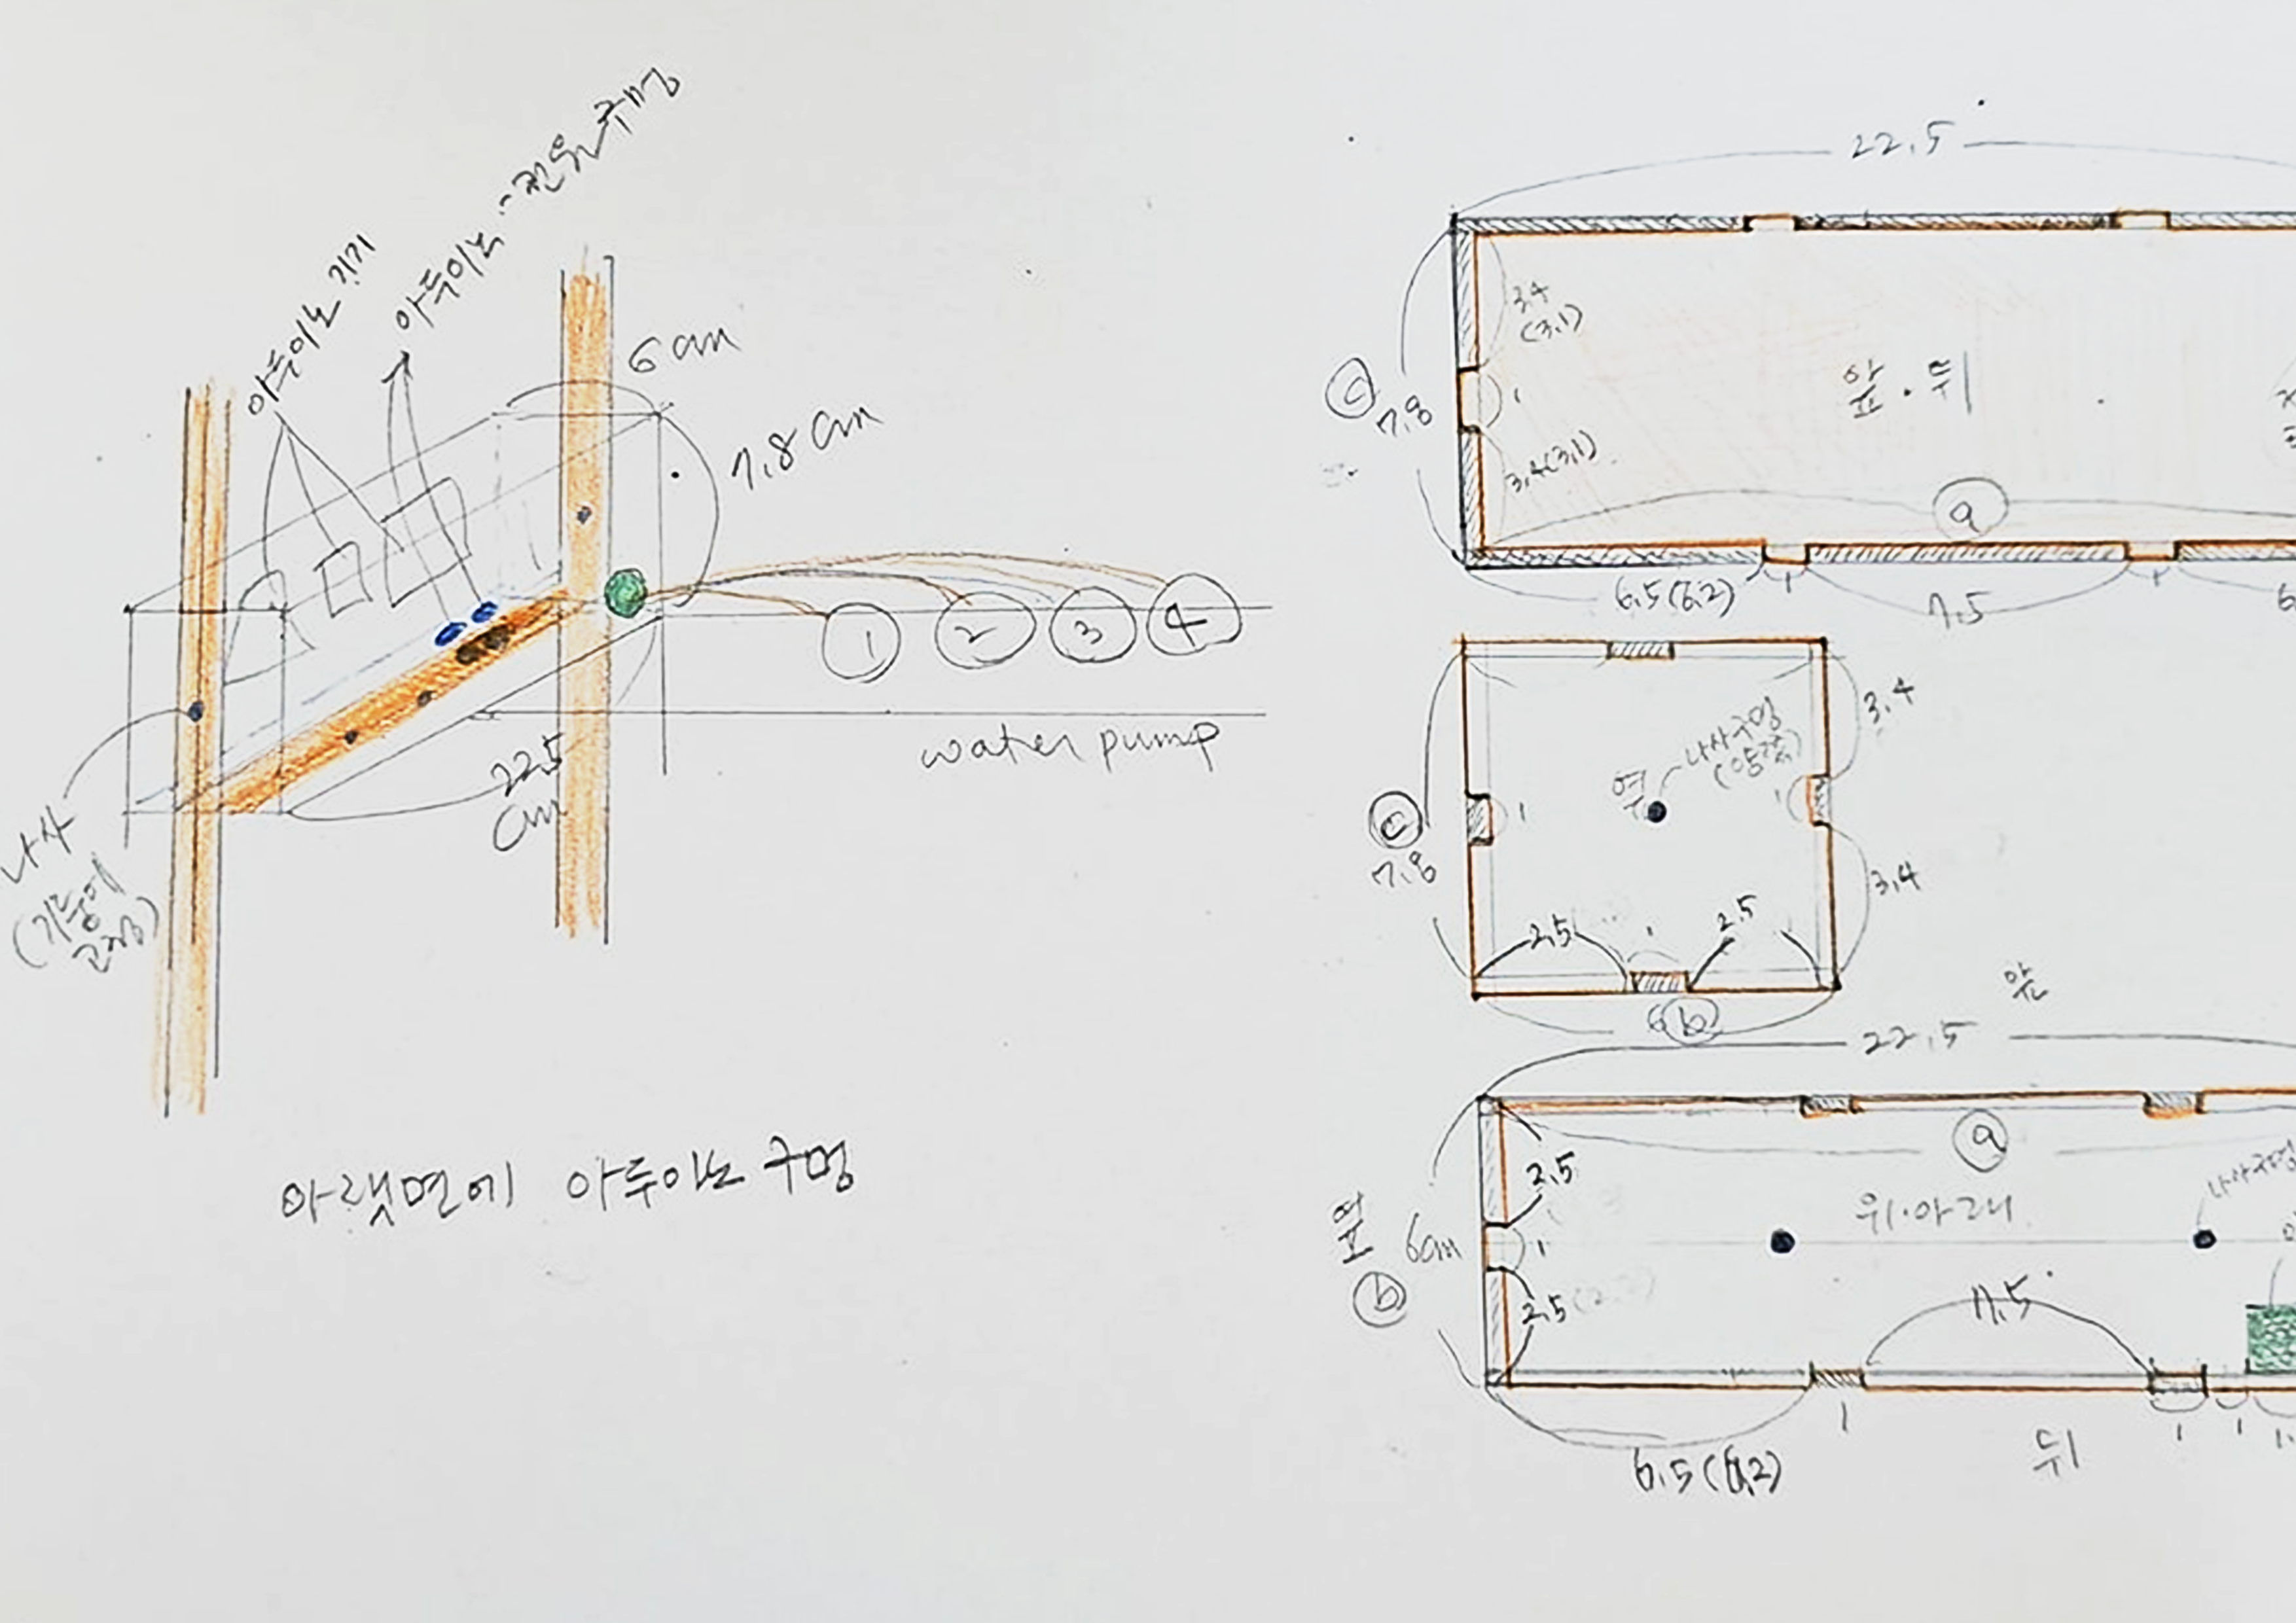 아두이노 기기
아두이노
6 cm
7.8 cm
1
2
3
4
water pump
22.5
cm
나사
(기둥에
고정)
아랫면에 아두이노 구멍
22.5
3.4
(3.1)
c
7.8
1
앞·뒤
3.4(3.1)
a
6.5(6.2)
1
7.5
1
6
3.4
나사구멍
(양쪽)
옆
c
7.8
1
1
3.4
2.5
1
2.5
6
b
앞
22.5
a
2.5
나사구멍
위·아래
옆
6cm
1
b
2.5
7.5
6.5(6.2)
1
뒤
1
1
1.